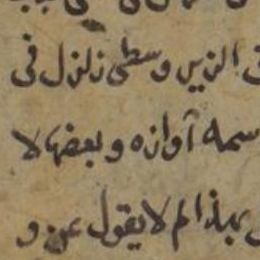 الزير وسطى زلزل فى
سمه آوازه وبعضها لا
بهذا لم لا يقول عن و